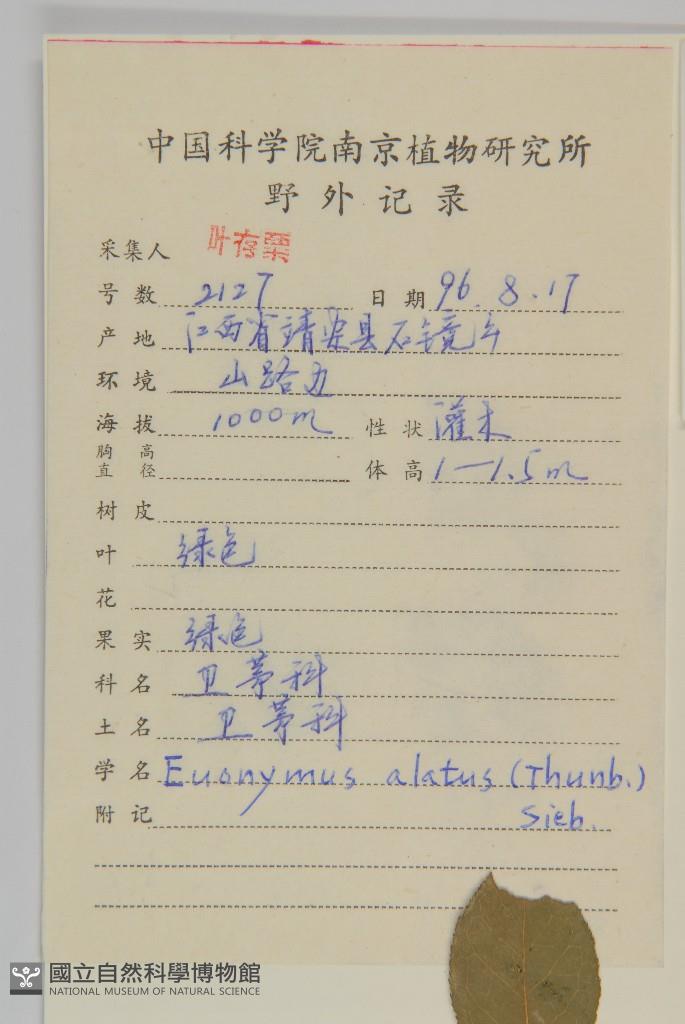 中国科学院南京植物研究所
野外记录
采集人 叶存栗
号数 2127 日期 96.8.17
产地 江西省靖安县石镜乡
环境 山路边
海拔 1000m 性状 灌木
胸高直径 体高 1—1.5m
树皮
叶 绿色
花
果实 绿色
科名 卫茅科
土名 卫茅科
学名 Euonymus alatus (Thunb.)
附记 Sieb.
國立自然科學博物館
NATIONAL MUSEUM OF NATURAL SCIENCE